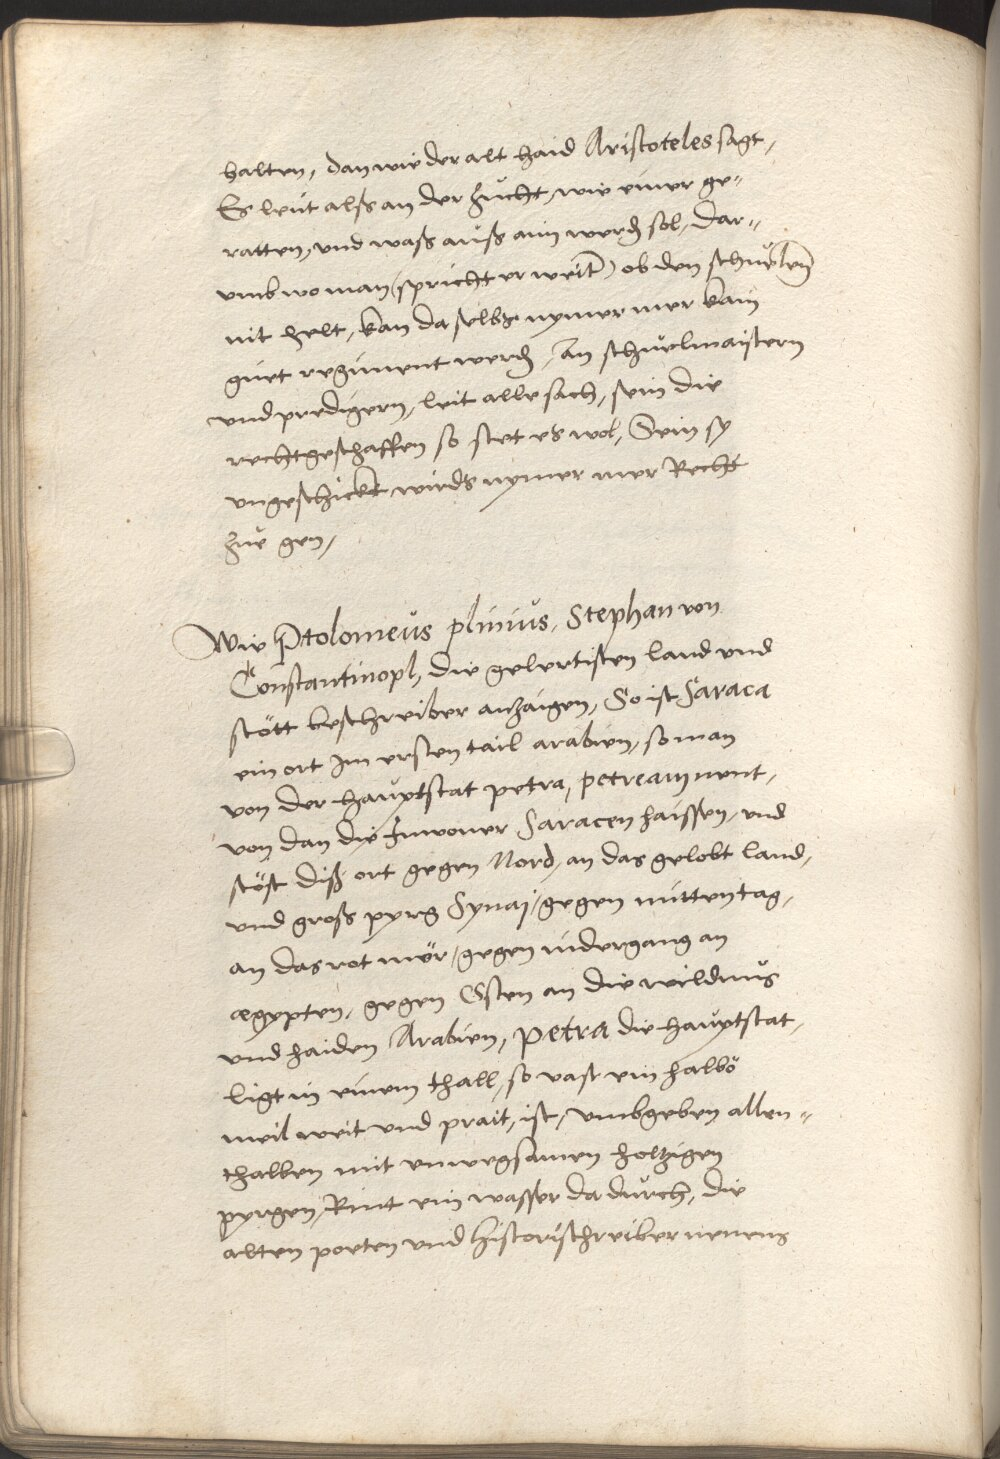 halten, dan wie der alt haid Aristoteles sagt,
Es leüt alß an der zücht, wie einer ge-
ratten, und waß auß aim werdn sol, Dar-
umb wo man (spricht er weiter) ob den schuelen
nit helt, kan da selbs nymer mer kain
guet regiment werdn, An schuelmaistern
und predigern, leit alle sach, sein die
rechtgeschaffen so stet es wol, Sein sy
ungeschickt wirds nymer mer Recht
zue gen,
Wie Ptolomeus plinius, Stephan von
Constantinopl, die gelertisten land und
stött beschreiber anzaigen, So ist Saraca
ein ort Im ersten tail arabien, so man
von der hauptstat petra, petream nent,
von dan die Inwoner Saracen haissen, und
stöst diß ort gegen Nord, an das gelobt land,
und groß pyrg Synaj, gegen mittentag,
an das rot mör, gegen nidergang an
ægypten, gegen Osten an die wildnus
und haiden Arabien, Petra die hauptstat,
ligt in einem thall, so vast ein halbö
meil weit und prait, ist, umbgeben allen-
thalben mit unwegsamen holtzigen
pyrgen, Rint ein wasser da durch, die
alten poeten und historischreiber nenens